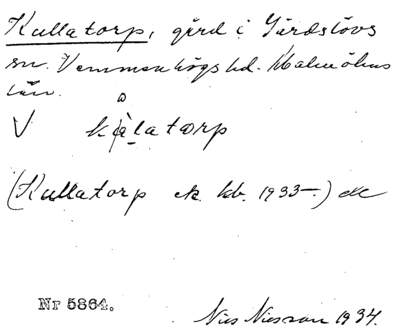 Kullatorp, gård i Gärdslövs
sn. Vemmenhögs hd. Malmöhus
län.
V kålatɷrp
(Kullatorp ek. kb. 1933–)
Nr 5864.
Nils Nilsson 1934.